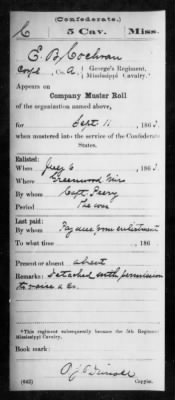 (Confederate.)
C 5 Cav. Miss.
E. B. Cochran
Corpl, Co. A, George's Regiment, Mississippi Cavalry.*
Appears on
Company Muster Roll
of the organization named above,
for Sept 11, 1863
when mustered into the service of the Confederate
States.
Enlisted:
When July 6, 1863
Where Greenwood Miss
By whom Capt. Peery
Period The war
Last paid:
By whom Pay due from enlistment
To what time 186
Present or absent absent
Remarks: Detached with permission
to raise a Co.
*This regiment subsequently became the 5th Regiment
Mississippi Cavalry.
Book mark:
(642) Copyist.